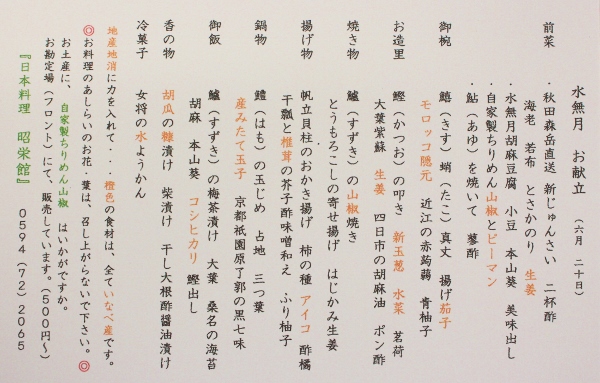 水無月　お献立　（六月　二十日）
前菜　・秋田森岳直送 新じゅんさい　二杯酢
海老　若布　とさかのり　生姜
・水無月胡麻豆腐　小豆　本山葵　美味出し
・自家製ちりめん山椒とピーマン
・鮎（あゆ）を焼いて　蓼酢
御椀　鱚（きす）蛸（たこ）真丈　揚げ茄子
モロッコ隠元　近江の赤蒟蒻　青柚子
お造里　鰹（かつお）の叩き　新玉葱　水菜　茗荷
大葉紫蘇　生姜　四日市の胡麻油　ポン酢
焼き物　鱸（すずき）の山椒焼き
とうもろこしの寄せ揚げ　はじかみ生姜
揚げ物　帆立貝柱のおかき揚げ　柿の種　アイコ　酢橘
干瓢と椎茸の芥子酢味噌和え　ふり柚子
鍋物　鱧（はも）の玉じめ　占地　三つ葉
産みたて玉子　京都祇園原了郭の黒七味
御飯　鱸（すずき）の梅茶漬け　大葉　桑名の海苔
胡麻　本山葵　コシヒカリ　鰹出し
香の物　胡瓜の糠漬け　柴漬け　干し大根酢醤油漬け
冷菓子　女将の水ようかん
地産地消に力を入れて・・・橙色の食材は、全ていなべ産です。
◎お料理のあしらいのお花・葉は、召し上がらないで下さい。◎
お土産に、　自家製ちりめん山椒　はいかがですか。
お勘定場（フロント）にて、販売しています。（５００円〜）
『日本料理　昭栄館』　０５９４（７２）２０６５